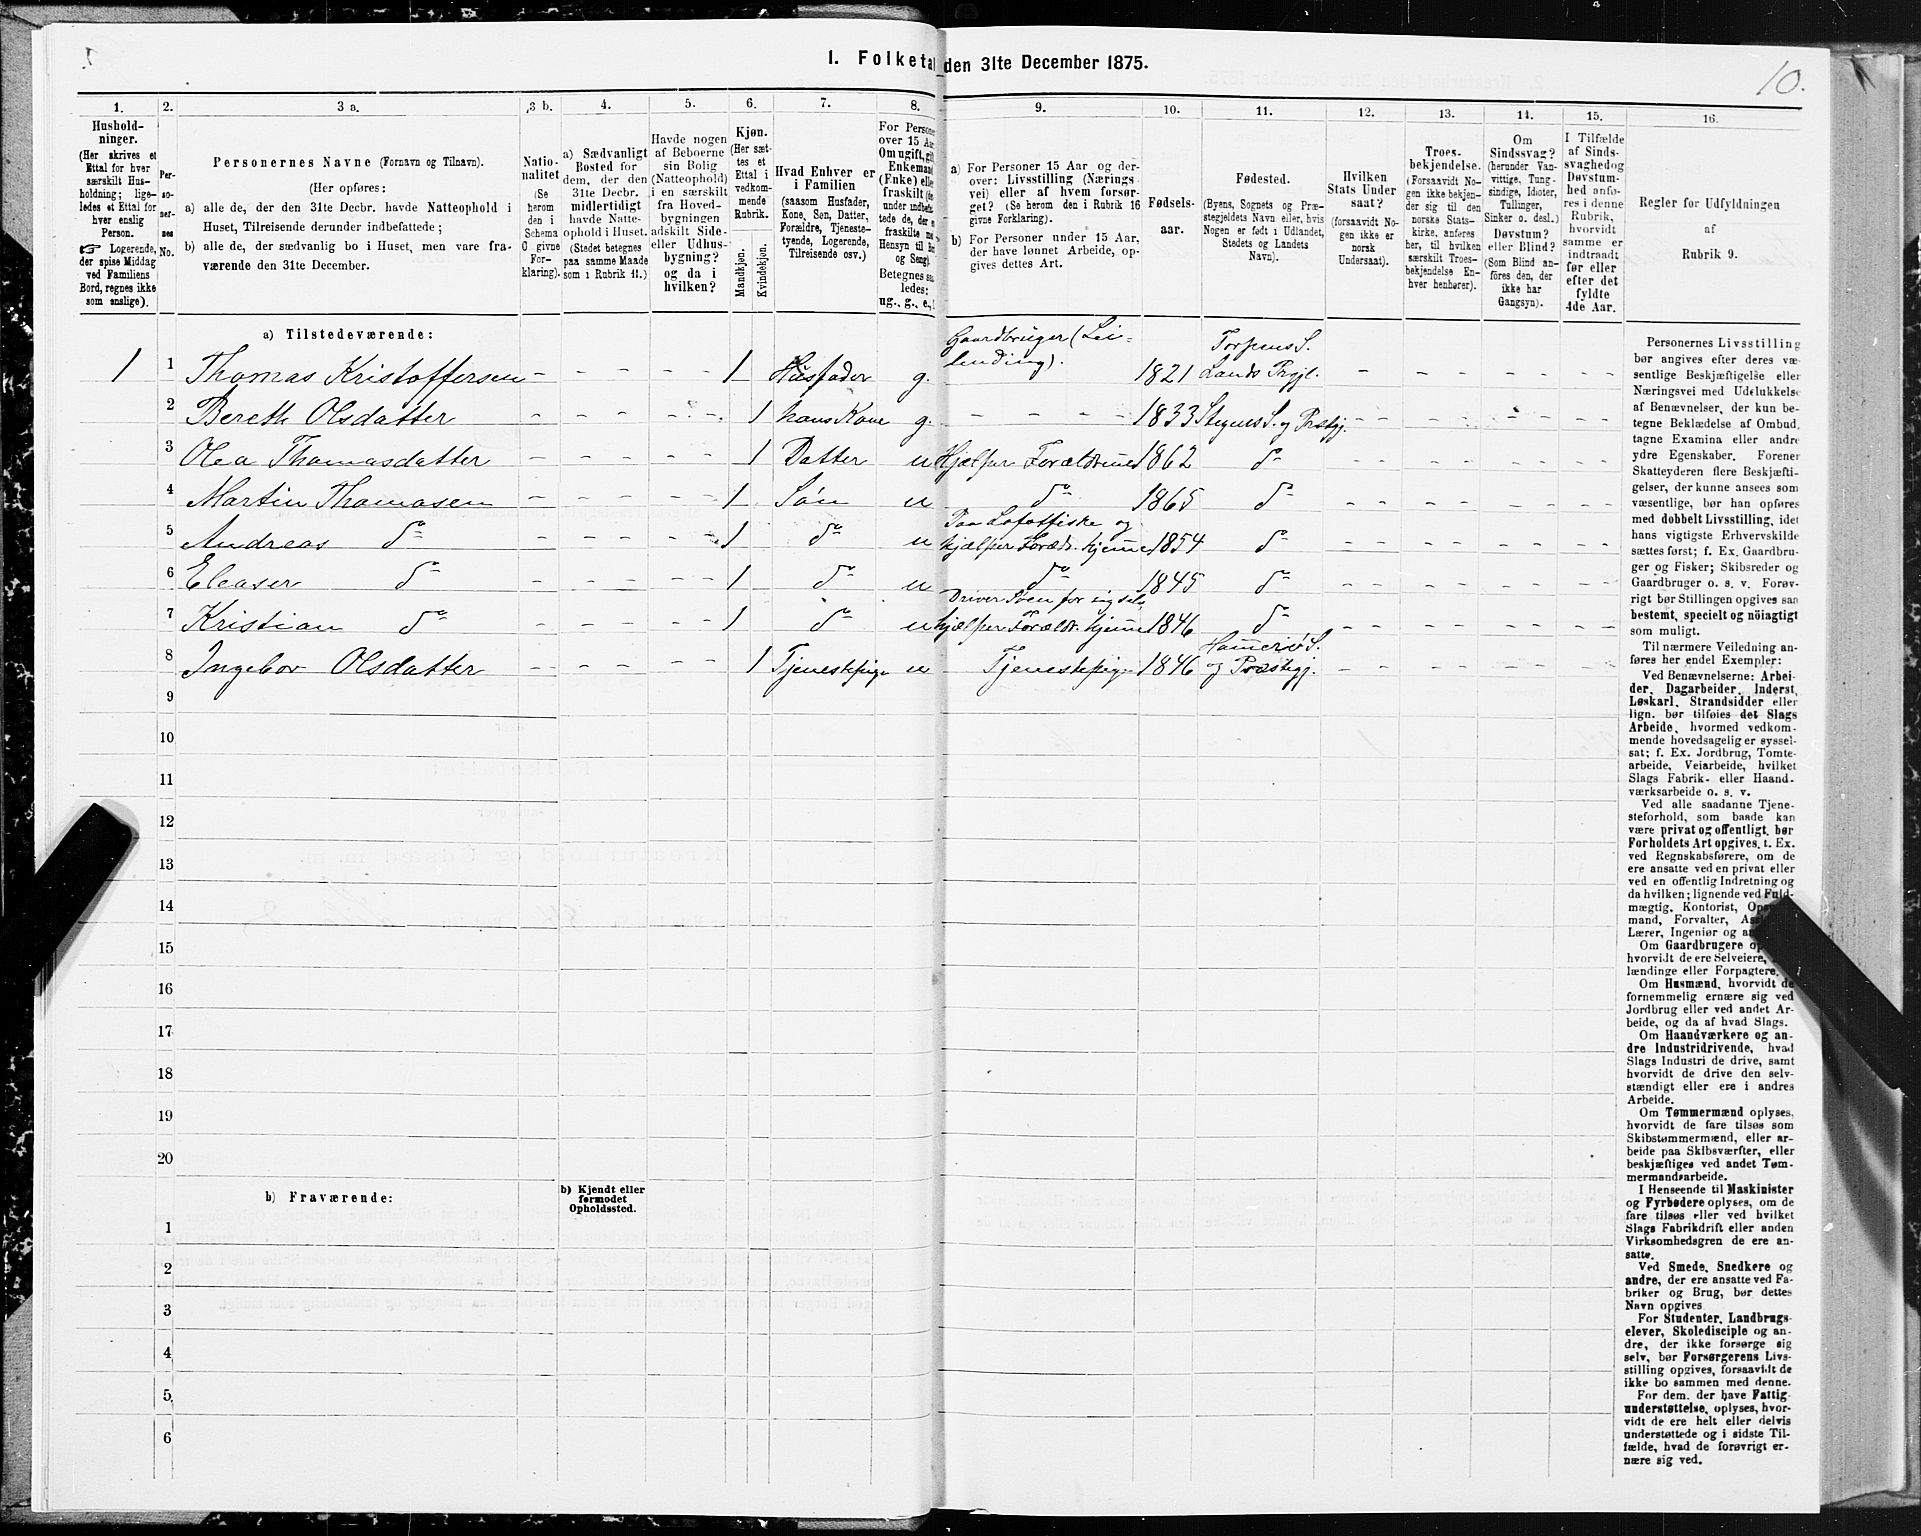 1. Folketal den 31te December 1875.
10.
1. 2. 3 a. 3 b. 4. 5. 6. 7. 8. 9. 10. 11. 12. 13. 14. 15. 16.
Hushold-
ninger.
(Her skrives et
Ettal for hver
særskilt Hus-
holdning; lige-
ledes et Ettal for
hver enslig
Person.
☞ Logerende,
der spise Middag
ved Familiens
Bord, regnes ikke
som enslige).
Per-
so-
ner-
nes
No.
Personernes Navne (Fornavn og Tilnavn).
(Her opføres:
a) alle de, der den 31te Decbr. havde Natteophold i
Huset, Tilreisende derunder indbefattede;
b) alle de, der sædvanlig bo i Huset, men vare fra-
værende den 31te December.
Natio-
nalitet
(Se
herom
den i
Schema
O givne
For-
klaring).
a) Sædvanligt
Bosted for
dem, der den
31te Decbr.
midlertidigt
havde Natte-
ophold i Huset.
(Stedet betegnes
paa samme Maade
som i Rubrik 11.)
Havde nogen
af Beboerne
sin Bolig
(Natteophold)
i en særskilt
fra Hoved-
bygningen
adskilt Side-
eller Udhus-
bygning?
og da i
hvilken?
Kjøn.
(Her sæt-
tes et
Ettal i
vedkom-
mende
Rubrik.
Mandkjøn.
Kvindekjøn.
Hvad Enhver er
i Familien
(saasom Husfader,
Kone, Søn, Datter,
Forældre, Tjeneste-
tyende, Logerende,
Tilreisende osv.)
For Persone
over 15 Aa
Om ugift, gif
Enkemand
(Enke) elle
fraskilt (he
under indbefa
tede de, der e
fraskilte me
Hensyn til Bo
og Seng).
Betegnes saa
ledes:
ug., g., e.,
a) For Personer 15 Aar og der-
over: Livsstilling (Nærings-
vei) eller af hvem forsør-
get? (Se herom den i Rubrik 16
givne Forklaring).
b) For Personer under 15 Aar,
der have lønnet Arbeide, op-
gives dettes Art.
Fødsels-
aar.
Fødested.
(Byens, Sognets og Præ-
stegjeldets Navn eller, hvis
Nogen er født i Udlandet,
Stedets og Landets
Navn).
Hvilken
Stats Under-
saat?
(forsaavidt No-
gen ikke er
norsk
Undersaat).
Troes-
bekjendelse.
(Forsaavidt No-
gen ikke bekjen-
der sig til den
norske Stats-
kirke, anføres
her, til hvilken
særskilt Troes-
bekjendelse En-
hver henhører).
Om
Sindssvag?
(herunder Van-
vittige, Tung-
sindige, Idioter,
Tullinger,
Sinker o. desl.)
Døvstum?
eller Blind?
(Som Blind an-
føres den, der
ikke har
Gangsyn).
I Tilfælde
af Sinds-
svaghed og
Døvstum-
hed anfø-
res i denne
Rubrik,
hvorvidt
samme er
indtraadt
før eller
efter det
fyldte
4de Aar.
Regler for Udfyldningen
af
Rubrik 9.
a) Tilstedeværende:
1 1 Thomas Kristoffersen - - - - - 1 Husfader g. Gaardbruger (Lei-
lending). 1821 Torpens S.
Lands Prgjl. - - - - - -
2 Bereth Olsdatter - - - - - 1 hans Kone g. - - - - 1833 Stegens S. og Præstgj. - - - - - -
3 Olea Thomasdatter - - - - - 1 Datter u Hjælper Forældrene 1862 do - - - - - -
4 Martin Thomasen - - - - - 1 Søn u do 1865 do - - - - - -
5 Andreas do - - - - - 1 do u Paa Lofotfiske og
hjælper Foræld. hjemme 1854 do - - - - - -
6 Eleaser do - - - - - 1 do u do 1845 do - - - - - -
7 Kristian do - - - - - 1 do u Driver Søen for sig selv,
hjælper Foræld. hjemme 1846 do - - - - - -
8 Ingebor Olsdatter - - - - - 1 Tjenestepige u Tjenestepige 1846 Hamerø S.
og Præstegj. - - - - - -
9
10
11
12
13
14
15
16
17
18
19
20
b) Fraværende:
b) Kjendt eller
formodet
Opholdssted.
1
2
3
4
5
6
Personernes Livsstilling
bør angives efter deres væ-
sentlige Beskjæftigelse eller
Næringsvei med Udelukkelse
af Benævnelser, der kun be-
tegne Beklædelse af Ombud,
tagne Examina eller andre
ydre Egenskaber. Forener
Skatteyderen flere Beskjæfti-
gelser, der kunne ansees som
væsentlige, bør han opføres
med dobbelt Livsstilling, idet
hans vigtigste Erhvervskilde
sættes først; f. Ex. Gaardbru-
ger og Fisker; Skibsreder og
Gaardbruger o. s. v. Forøv-
rigt bør Stillingen opgives saa
bestemt, specielt og nöiagtigt
som muligt.
Til nærmere Veiledning an-
føres her endel Exempler:
Ved Benævnelserne: Arbei-
der, Dagarbeider, Inderst,
Løskarl, Strandsidder eller
lign. bør tilføies det Slags
Arbeide, hvormed vedkom-
mende hovedsagelig er syssel-
sat; f. Ex. Jordbrug, Tomte-
arbeide, Veiarbeide, hvilket
Slags Fabrik- eller Haand-
værksarbeide o. s. v.
Ved alle saadanne Tjene-
steforhold, som baade kan
være privat og offentligt, bør
Forholdets Art opgives, t. Ex.
ved Regnskabsførere, om de
ere ansatte ved en privat eller
ved en offentlig Indretning og
da hvilken; lignende ved Fuld-
mægtig, Kontorist, Op
mand, Forvalter, As
Lærer, Ingeniør og an
Om Gaardbrugere op
hvorvidt de ere Selveiere,
lændinge eller Forpagtere.
Om Husmænd, hvorvidt de
fornemmelig ernære sig ved
Jordbrug eller ved andet Ar-
beide, og da af hvad Slags.
Om Haandværkere og an-
dre Industridrivende, hvad
Slags Industri de drive, samt
hvorvidt de drive den selv-
stændigt eller ere i andres
Arbeide.
Om Tømmermænd oplyses,
hvorvidt de fare tilsøs som
Skibstømmermænd, eller ar-
beide paa Skibsværfter, eller
beskjæftiges ved andet Tøm-
mermandsarbeide.
I Henseende til Maskinister
og Fyrbødere oplyses, om de
fare tilsøs eller ved hvilket
Slags Fabrikdrift eller anden
Virksomhedsgren de ere an-
satte.
Ved Smede, Snedkere og
andre, der ere ansatte ved Fa-
briker og Brug, bør dettes
Navn opgives
For Studenter, Landbrugs-
elever, Skoledisciple og an-
dre, der ikke forsørge sig
selv, bør Forsørgerens Livs-
stilling opgives, forsaavidt de
ikke bo sammen med denne.
For dem, der have Fattig-
understøttelse, oplyses, hvor-
vidt de ere helt eller delvis
understøttede og i sidste Til-
fælde, hvad de forøvrigt er-
nære sig ved.